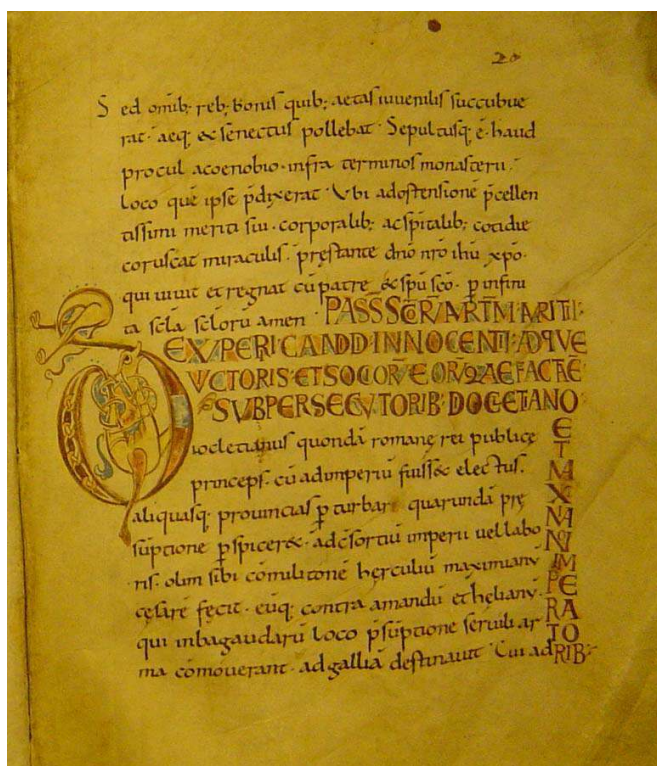 20
Sed omib; reb; bonus quib; aetas iuuenilis succubue
rat · aeq; & senectus pollebat · Sepultusq; ē · haud
procul a coenobio · infra terminos monasterii ·
loco quē ipse p̄dixerat · Ubi ad ostensionē p̄cellen
tissimi meriti sui · corporalib; ac sp̄italib; cotidie
coruscat miraculis · pręstante dn̄o nr̄o ihū xp̄o ·
qui uiuit et regnat cū patre & sp̄u sc̄o · p infini
ta sc̄la sc̄lorū amen · PASS SC̄RV̄ MARTM̄ MARITII ·
EXVPERI CANDD · INNOCENTI · ADQVE
VICTORIS · ET SOCORV̄ EORV̄ QAE FACTAĒ
SVB PERSECVTORIB · DOCETIANO
ET MAXNANO IMPERATORIB ·
Diocletianus quondā romanę rei publicę
princeps · cū ad imperiū fuiss& electus ·
aliquasq; prouincias pturbari quarundā pre
sūptione pspicer& · ad c̄sortiū imperii uel labo
ris · olim sibi cōmilitonē herculiū maximianū
cęsarē fecit · eūq; contra amandū et helianū ·
qui in bagaudarū loco p̄sūptione seruili ar
ma cōmouerant · ad galliā destinauit · Cui ad